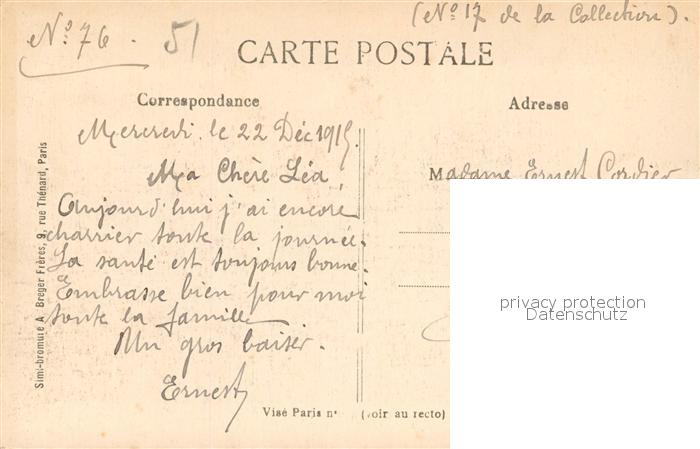 (No 17 de la Collection).
No 76. 51
CARTE POSTALE
Correspondance
Adresse
Mercredi le 22 Déc 1915.
Ma Chère Léa,
Aujourd'hui j'ai encore
charrier toute la journée.
La santé est toujours bonne.
Embrasse bien pour moi
toute la famille
Un gros baiser.
Ernest
Madame Ernest Cordier
privacy protection
Datenschutz
Visé Paris no (voir au recto)
Simi-bromure A. Breger Frères, 9, rue Thénard, Paris